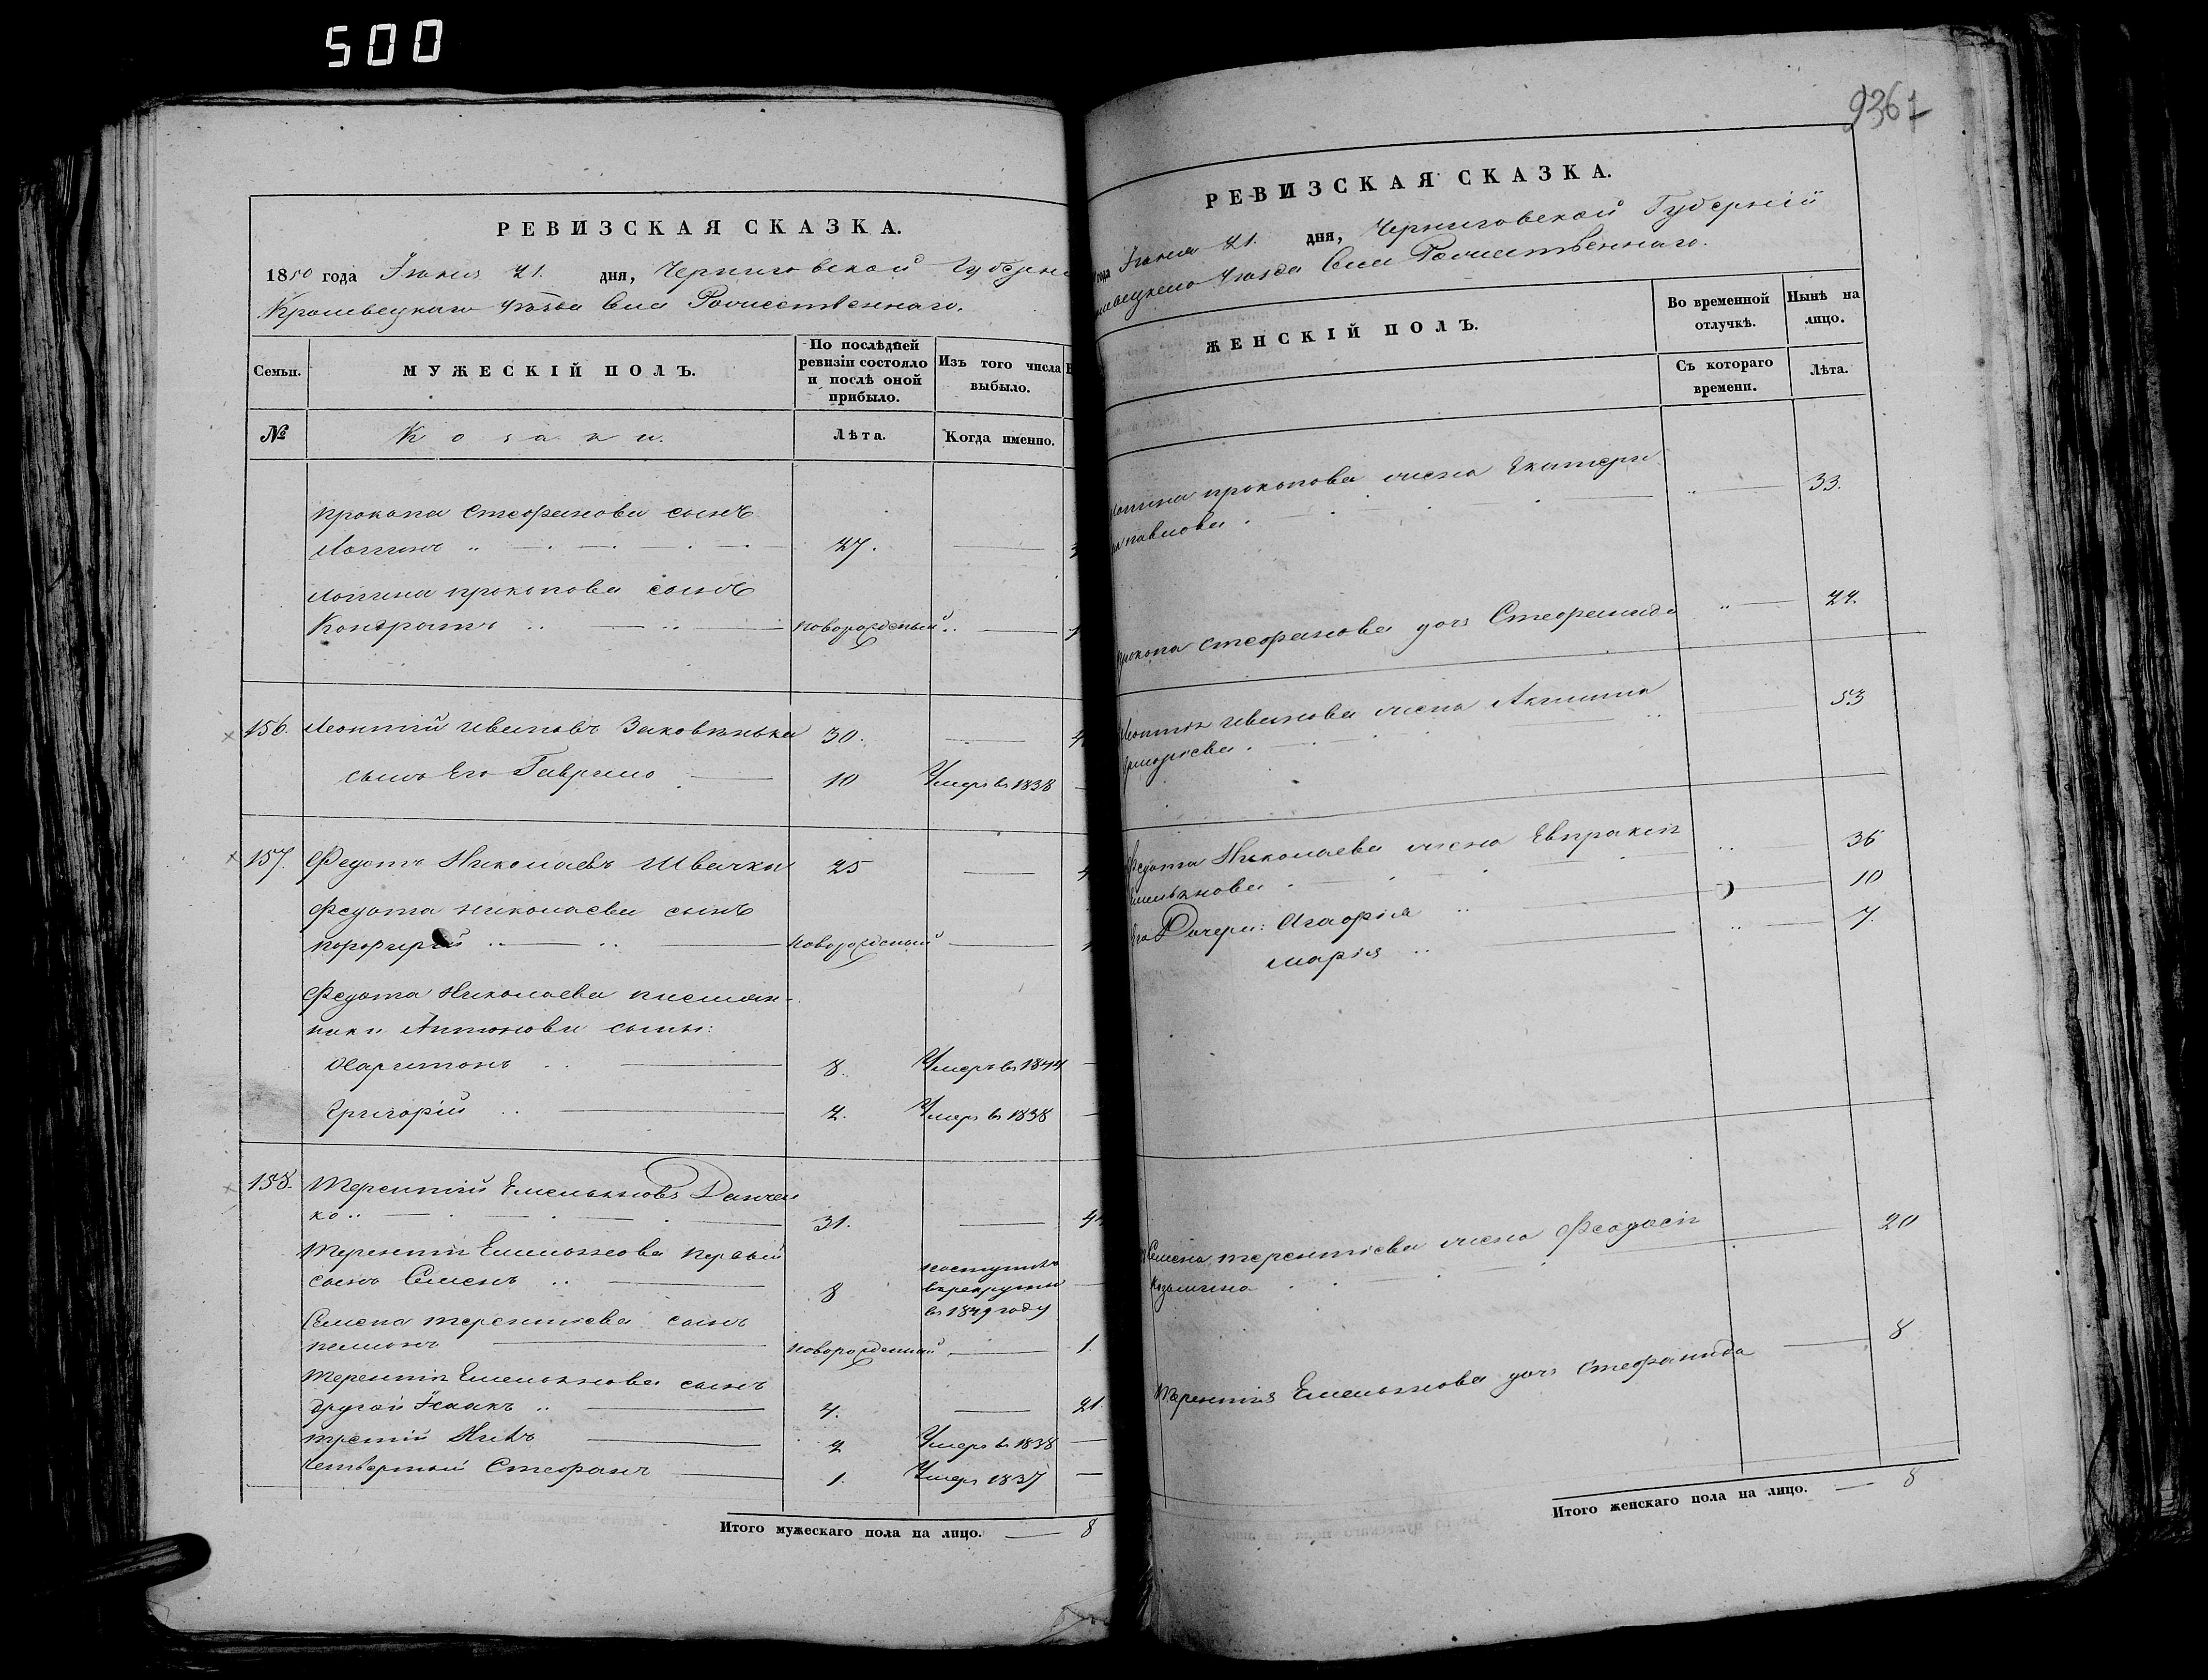 500
РЕВИЗСКАЯ СКАЗКА.
1850 года Іюня 21. дня, Черниговской Губерніи
Кролевецкаго уѣзда Села Рождественнаго.
Семьи.
МУЖЕСКІЙ ПОЛЪ.
По послѣдней ревизіи состояло и послѣ оной прибыло.
Изъ того числа выбыло.
№
Козаки.
Лѣта.
Когда именно.
Прокопа Стефанова сынъ
Логгинъ 27.
Логгина Прокопова сынъ
Кондратъ новорожденый
156. Леонтій Ивановъ Заковѣнька 30.
сынъ Его Гаврило 10 Умеръ въ 1838
157. Федотъ Николаевъ Швачка 25
Федота Николаева сынъ
Порфирій новорожденый
Федота Николаева племян-
ника Антонова сыны:
Харитонъ 8. Умеръ въ 1844
Григорій 2. Умеръ въ 1838
158. Терентій Емельяновъ Данчен
ко 31.
Терентія Емельянова первый
сынъ Семенъ 8 поступилъ
въ рекруты
въ 1849 году
Семена Терентіева сынъ
новорожденный 1.
Терентія Емельянова сынъ
другой Ісаакъ 4. 21
третій 2 Умеръ въ 1838
четвертый Стефанъ 1. Умеръ 1837
Итого мужескаго пола на лицо. 8
936
РЕВИЗСКАЯ СКАЗКА.
года Іюня 21. дня, Черниговской Губерніи
уѣзда Села Рождественнаго.
ЖЕНСКІЙ ПОЛЪ.
Во временной отлучкѣ.
Нынѣ на лицо.
Съ котораго времени.
Лѣта.
Логгина Прокопова жена Екатери
на Павлова 33.
Прокопа Стефанова дочь Стефанида 24.
Леонтія Иванова жена Акилина
Григоріева 53
Федота Николаева жена Евпраксія
Емельянова 36
Его Дочери: Агафія 10
Марія 7.
Семена Терентіева жена Феодосія
Козьмина 20
Терентія Емельянова дочь Стефанида 8
Итого женскаго пола на лицо. 8